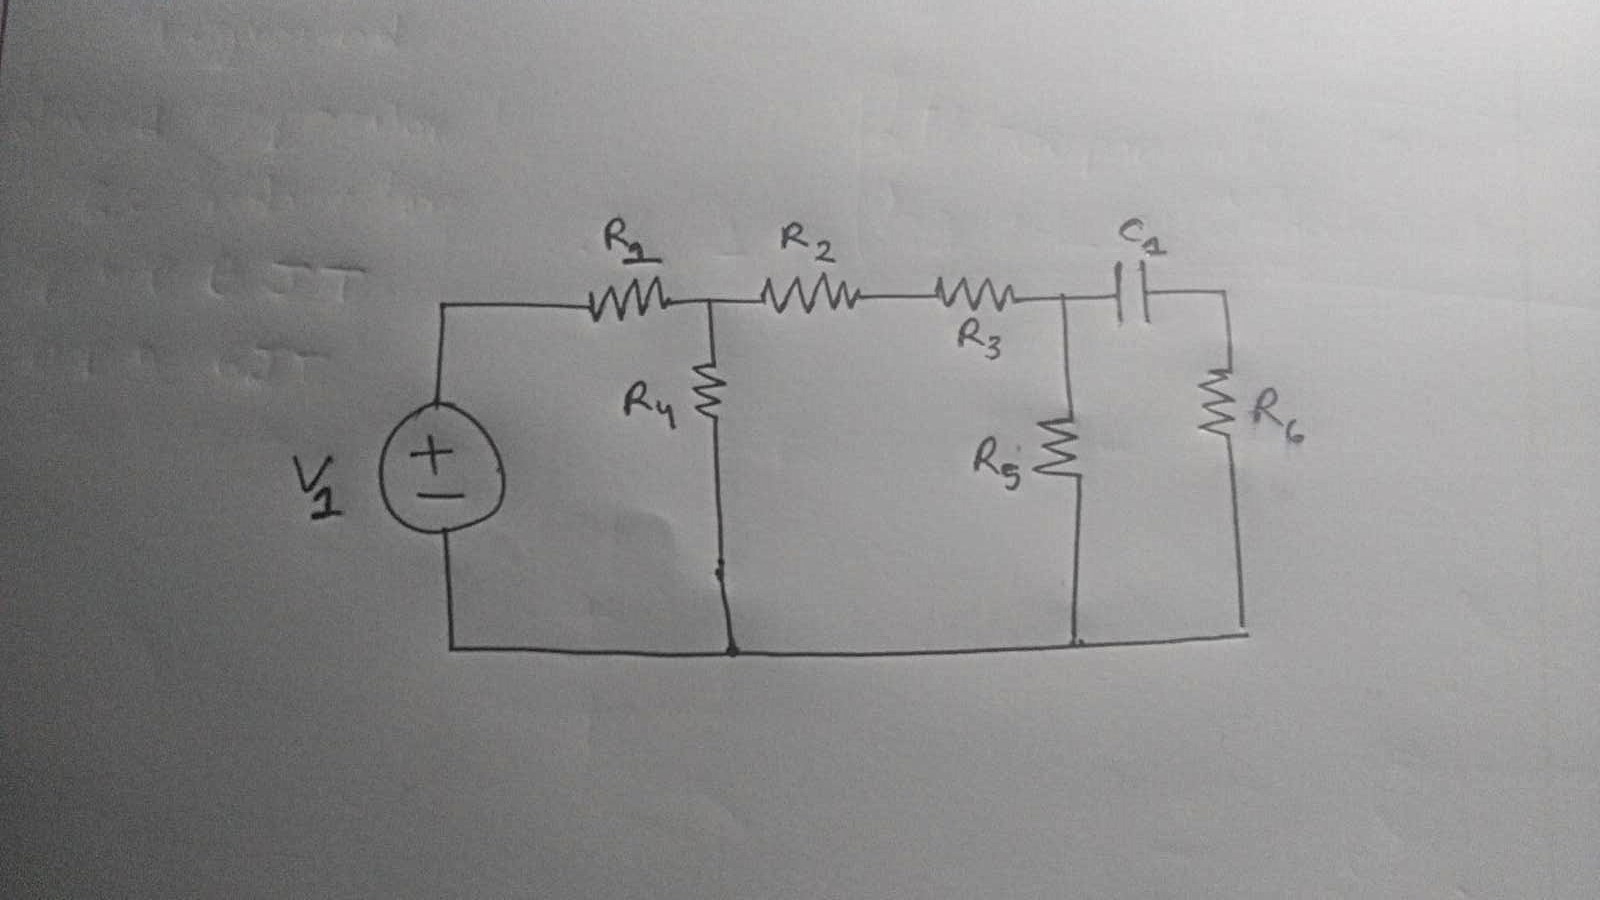 R1
R2
C1
R3
R4
R6
R5
+
−
V1